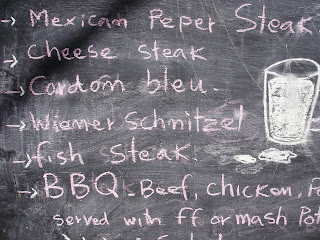 → Mexican Peper Steak.
→ Cheese steak
→ Cordom bleu.
→ Wiener Schnitzel
→ fish steak.
→ BBQ - Beef, chicken,
served with ff or mash